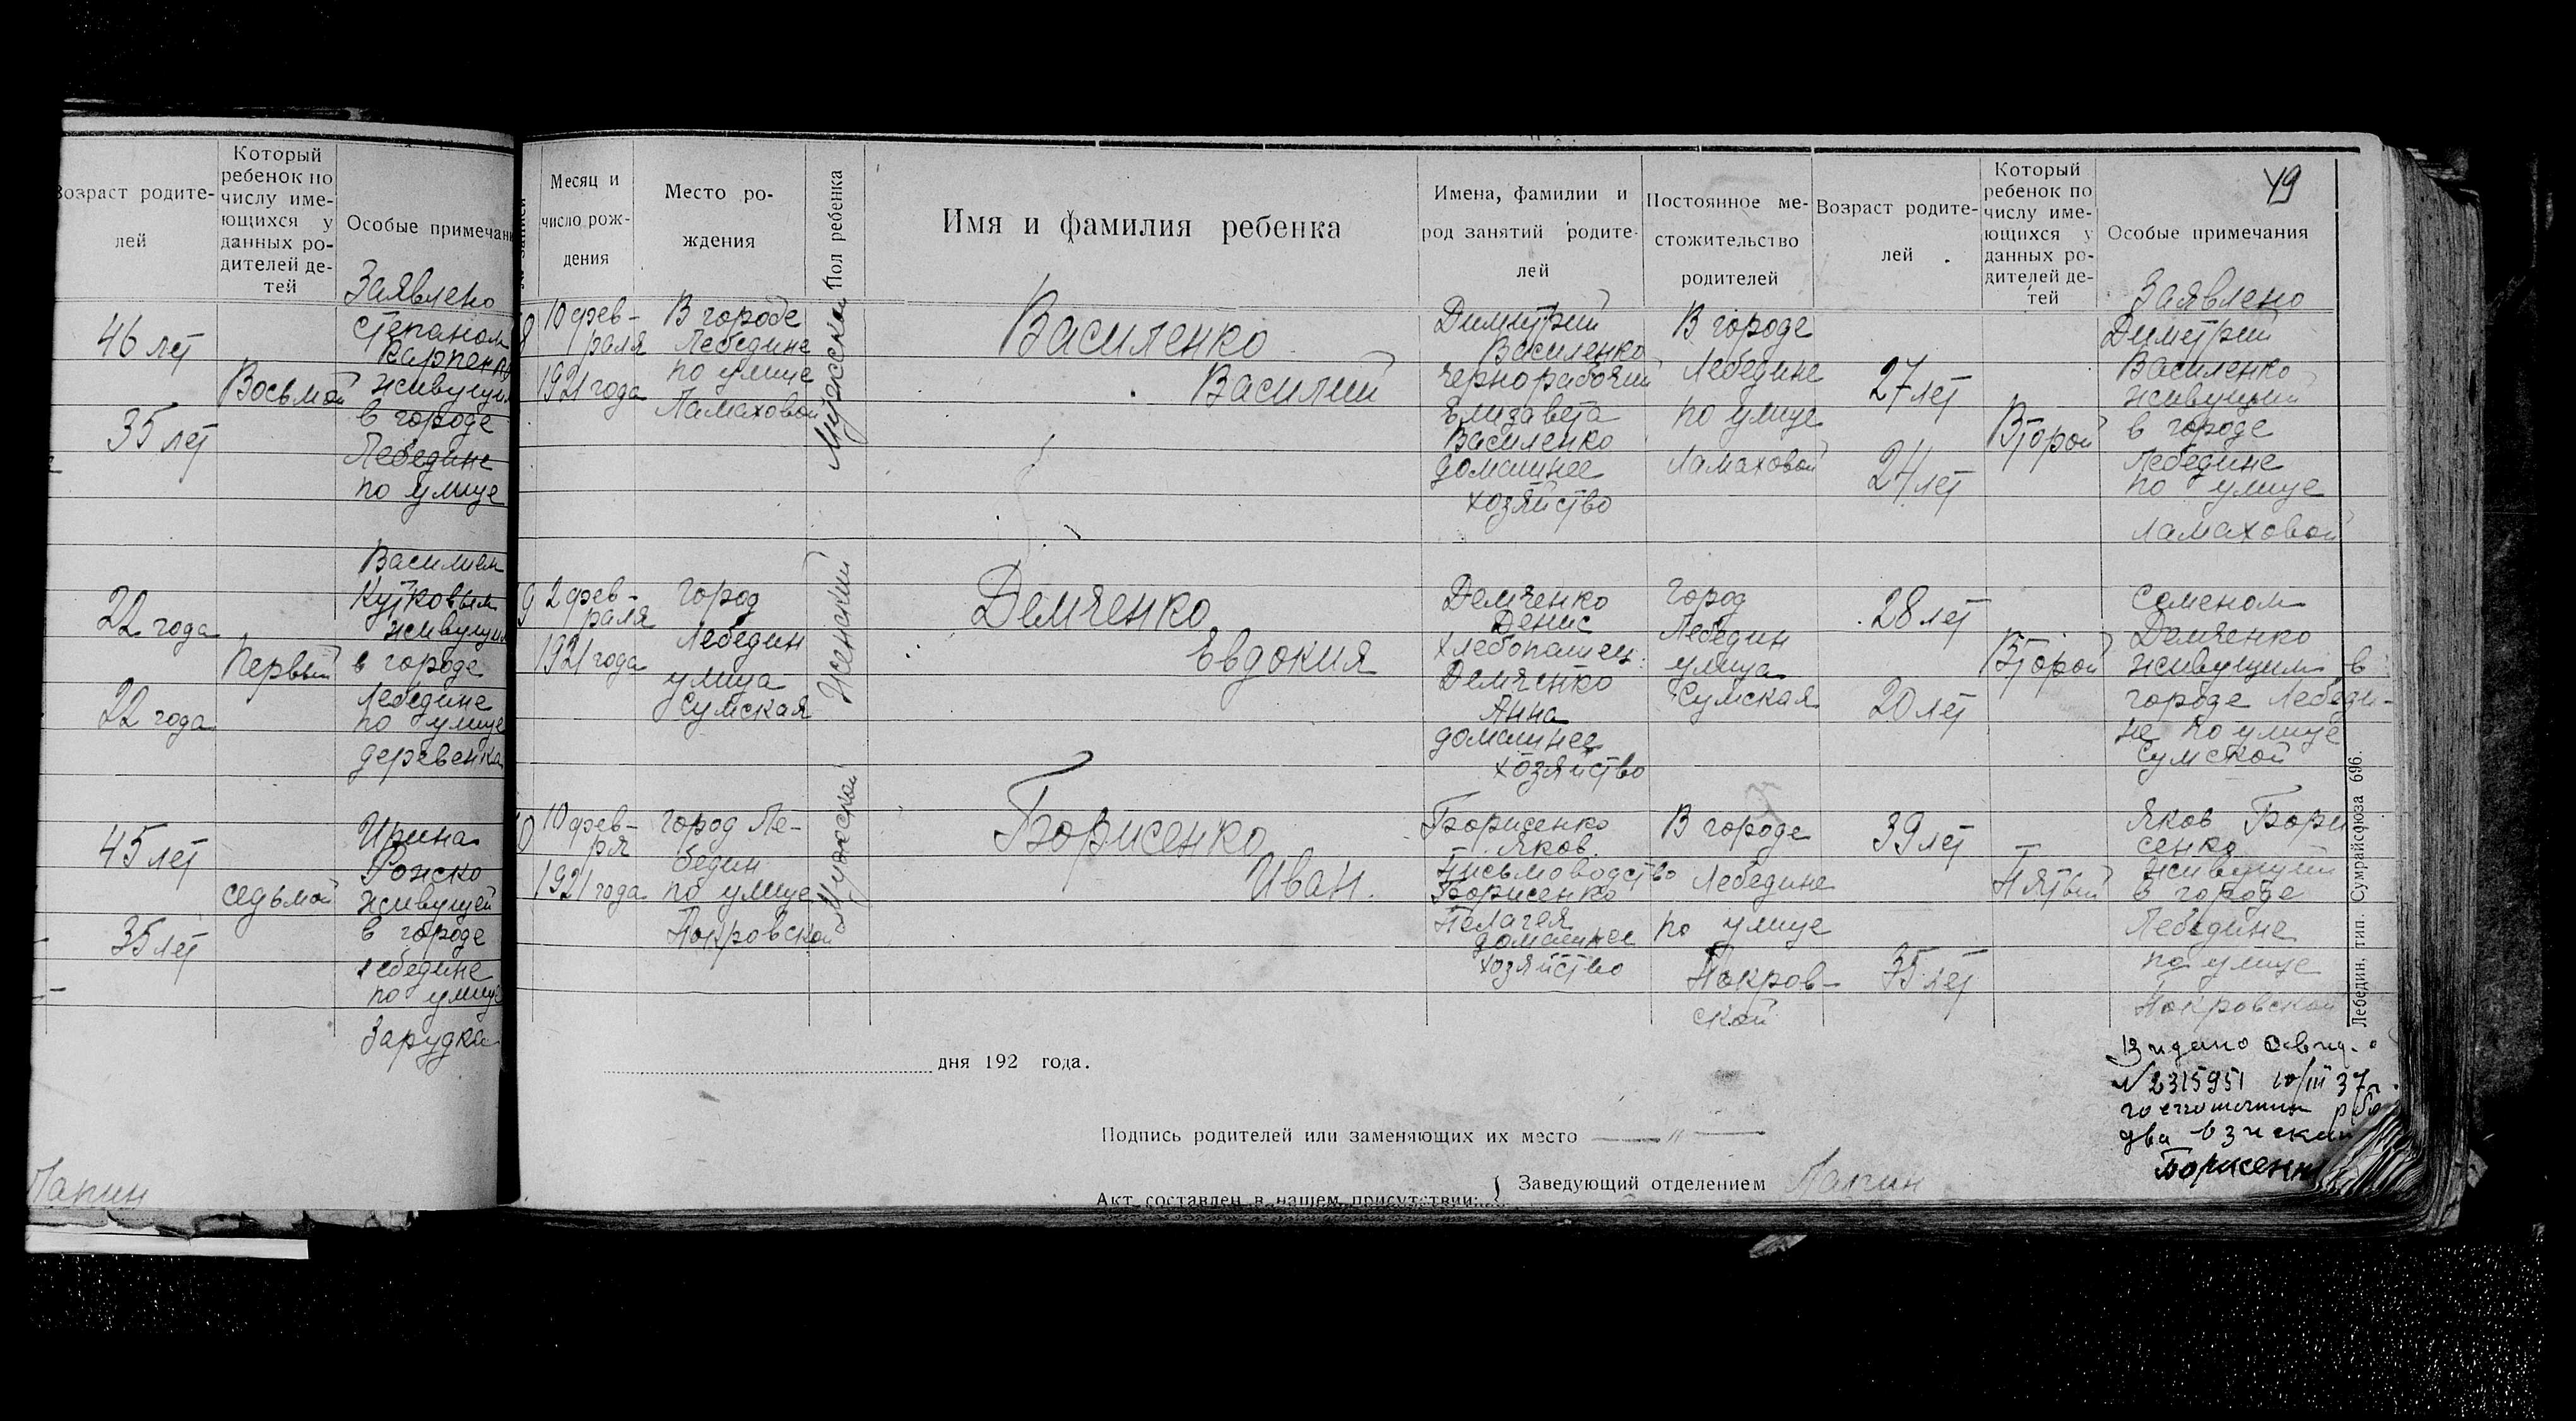 Возраст родите-
лей
Который
ребенок по
числу име-
ющихся у
данных ро-
дителей де-
тей
Особые примечан
Заявлено
46 лет
35 лет
Восьмой
Степаном
живущим
в городе
Лебедине
по улице
22 года
22 года
Первый
Василием
Кутковым
живущим
в городе
Лебедине
по улице
деревенка
45 лет
35 лет
седьмой
Ирина
Роиско
живущей
в городе
Лебедине
по улице
Зарудка
Лапин
49
Месяц и
число рож-
дения
Место ро-
ждения
Пол ребенка
Имя и фамилия ребенка
Имена, фамилии и
род занятий родите-
лей
Постоянное ме-
стожительство
родителей
Возраст родите-
лей
Который
ребенок по
числу име-
ющихся у
данных ро-
дителей де-
тей
Особые примечания
8
10 фев-
раля
1921 года
В городе
Лебедине
по улице
Ламаховой
Мужской
Василенко
Василий
Димитрий
Василенко
чернорабочий
Елизавета
Василенко
домашнее
хозяйство
В городе
Лебедине
по улице
Ламаховой
27 лет
24 лет
Второй
Заявлено
Димитрий
Василенко
живущий
в городе
Лебедине
по улице
Ламаховой
9
2 фев-
раля
1921 года
город
Лебедин
улица
Сумская
Женский
Демченко
Евдокия
Демченко
Денис
хлебопашец
Демченко
Анна
домашнее
хозяйство
город
Лебедин
улица
Сумская
28 лет
20 лет
Второй
Семеном
Демченко
живущим в
городе Лебеди-
не по улице
Сумской
0
10 фев-
ря
1921 года
город Ле-
бедин
по улице
Покровской
Мужской
Борисенко
Иван.
Борисенко
Яков.
Письмоводство
Борисенко
Пелагея
домашнее
хозяйство
В городе
Лебедине
по улице
Покров-
ской
39 лет
35 лет
Пятый
Яков Бори
сенко
живущий
в городе
Лебедине
по улице
Покровской
Видано свид.
№ 2315951 10/III 37р.
Борисенко
дня 192 года.
Подпись родителей или заменяющих их место — „ —
Заведующий отделением Лапин
Акт составлен в нашем присутствии:
Лебедин, тип. Сумрайсоюза 696.